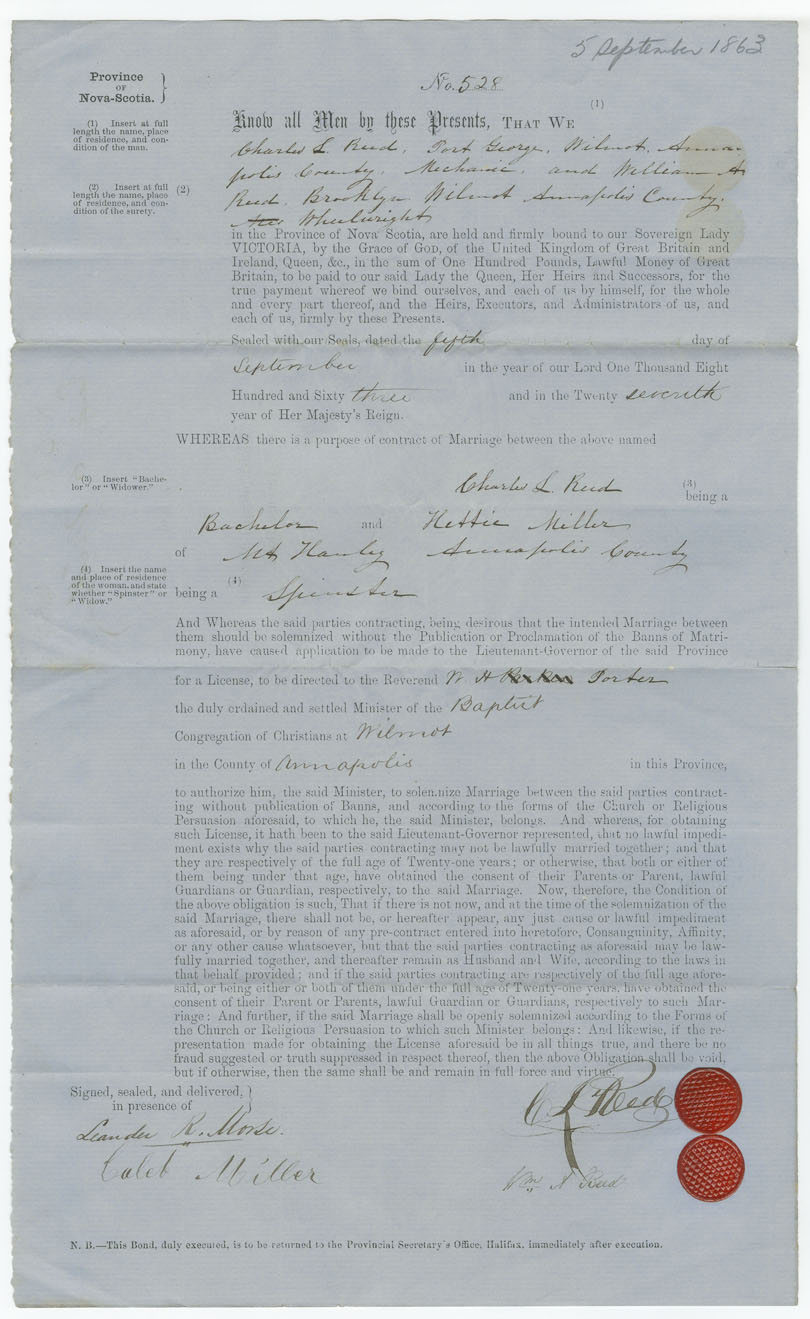 5 September 1863
Province
OF
Nova-Scotia.
No. 528
(1) Insert at full
length the name, place
of residence, and con-
dition of the man.
(1)
Know all Men by these Presents, THAT WE
Charles L. Reed, Port George, Wilmot, Anna-
polis County, Mechanic, and William A
(2) Insert at full
length the name, place
of residence, and con-
dition of the surety.
(2)
Reed, Brooklyn Wilmot Annapolis County,
Wheelwright
in the Province of Nova Scotia, are held and firmly bound to our Sovereign Lady
VICTORIA, by the Grace of God, of the United Kingdom of Great Britain and
Ireland, Queen, &c., in the sum of One Hundred Pounds, Lawful Money of Great
Britain, to be paid to our said Lady the Queen, Her Heirs and Successors, for the
true payment whereof we bind ourselves, and each of us by himself, for the whole
and every part thereof, and the Heirs, Executors, and Administrators of us, and
each of us, firmly by these Presents.
Sealed with our Seals, dated the fifth day of
September in the year of our Lord One Thousand Eight
Hundred and Sixty three and in the Twenty seventh
year of Her Majesty's Reign.
WHEREAS there is a purpose of contract of Marriage between the above named
(3) Insert "Bache-
lor" or "Widower."
Charles L. Reed (3) being a
Bachelor and Hettie Miller
of Mt Hanley Annapolis County
(4) Insert the name
and place of residence
of the woman, and state
whether "Spinster" or
"Widow."
being a (4) Spinster
And Whereas the said parties contracting, being desirous that the intended Marriage between
them should be solemnized without the Publication or Proclamation of the Banns of Matri-
mony, have caused application to be made to the Lieutenant-Governor of the said Province
for a License, to be directed to the Reverend W H Porter
the duly ordained and settled Minister of the Baptist
Congregation of Christians at Wilmot
in the County of Annapolis in this Province,
to authorize him, the said Minister, to solemnize Marriage between the said parties contract-
ing without publication of Banns, and according to the forms of the Church or Religious
Persuasion aforesaid, to which he, the said Minister, belongs. And whereas, for obtaining
such License, it hath been to the said Lieutenant-Governor represented, that no lawful impedi-
ment exists why the said parties contracting may not be lawfully married together; and that
they are respectively of the full age of Twenty-one years; or otherwise, that both or either of
them being under that age, have obtained the consent of their Parents or Parent, lawful
Guardians or Guardian, respectively, to the said Marriage. Now, therefore, the Condition of
the above obligation is such, That if there is not now, and at the time of the solemnization of the
said Marriage, there shall not be, or hereafter appear, any just cause or lawful impediment
as aforesaid, or by reason of any pre-contract entered into heretofore, Consanguinity, Affinity,
or any other cause whatsoever, but that the said parties contracting as aforesaid may be law-
fully married together, and thereafter remain as Husband and Wife, according to the laws in
that behalf provided; and if the said parties contracting are respectively of the full age afore-
said, or being either or both of them under the full age of Twenty-one years, have obtained the
consent of their Parent or Parents, lawful Guardian or Guardians, respectively to such Mar-
riage: And further, if the said Marriage shall be openly solemnized according to the Forms of
the Church or Religious Persuasion to which such Minister belongs: And likewise, if the re-
presentation made for obtaining the License aforesaid be in all things true, and there be no
fraud suggested or truth suppressed in respect thereof, then the above Obligation shall be void,
but if otherwise, then the same shall be and remain in full force and virtue.
Signed, sealed, and delivered,
in presence of
C L Reed
Leander R. Morse.
Caleb Miller
Wm A Reed
N. B.—This Bond, duly executed, is to be returned to the Provincial Secretary's Office, Halifax, immediately after execution.